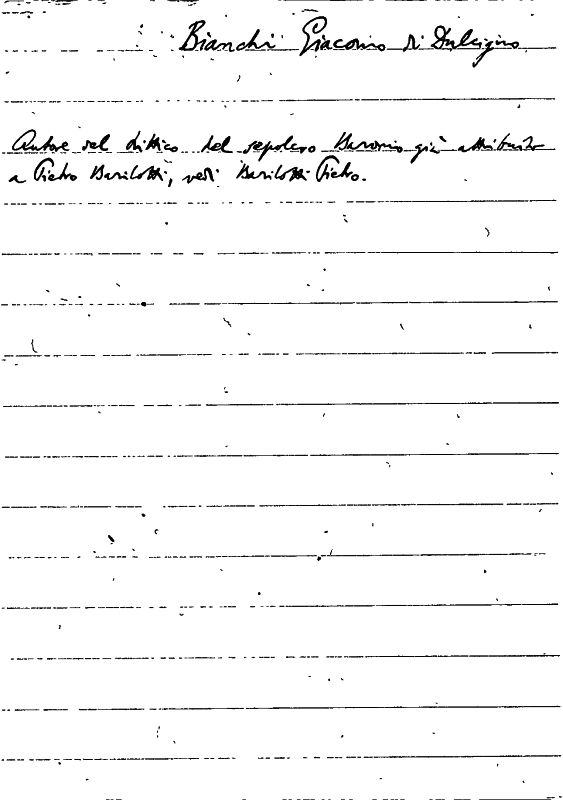 Bianchi Giacomo di Dulcigno
Autore del dittico del sepolcro Baronio già attribuito
a Pietro Barilotti, vedi Barilotti Pietro.